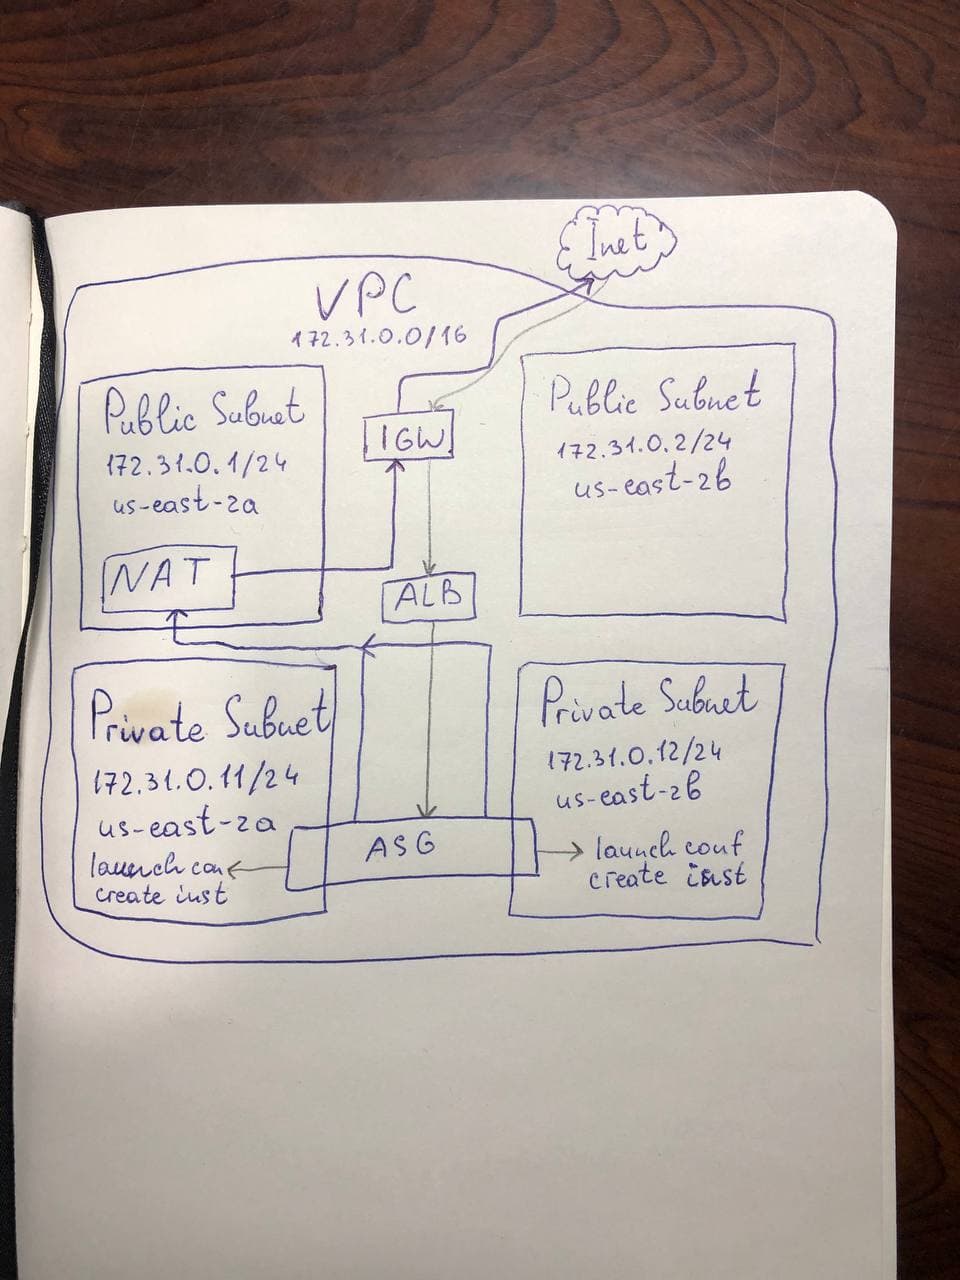 Inet
VPC
172.31.0.0/16
Public Subnet
172.31.0.1/24
us-east-2a
NAT
IGW
ALB
Public Subnet
172.31.0.2/24
us-east-2b
Private Subnet
172.31.0.11/24
us-east-2a
launch con
create inst
ASG
Private Subnet
172.31.0.12/24
us-east-2b
launch conf
create inst